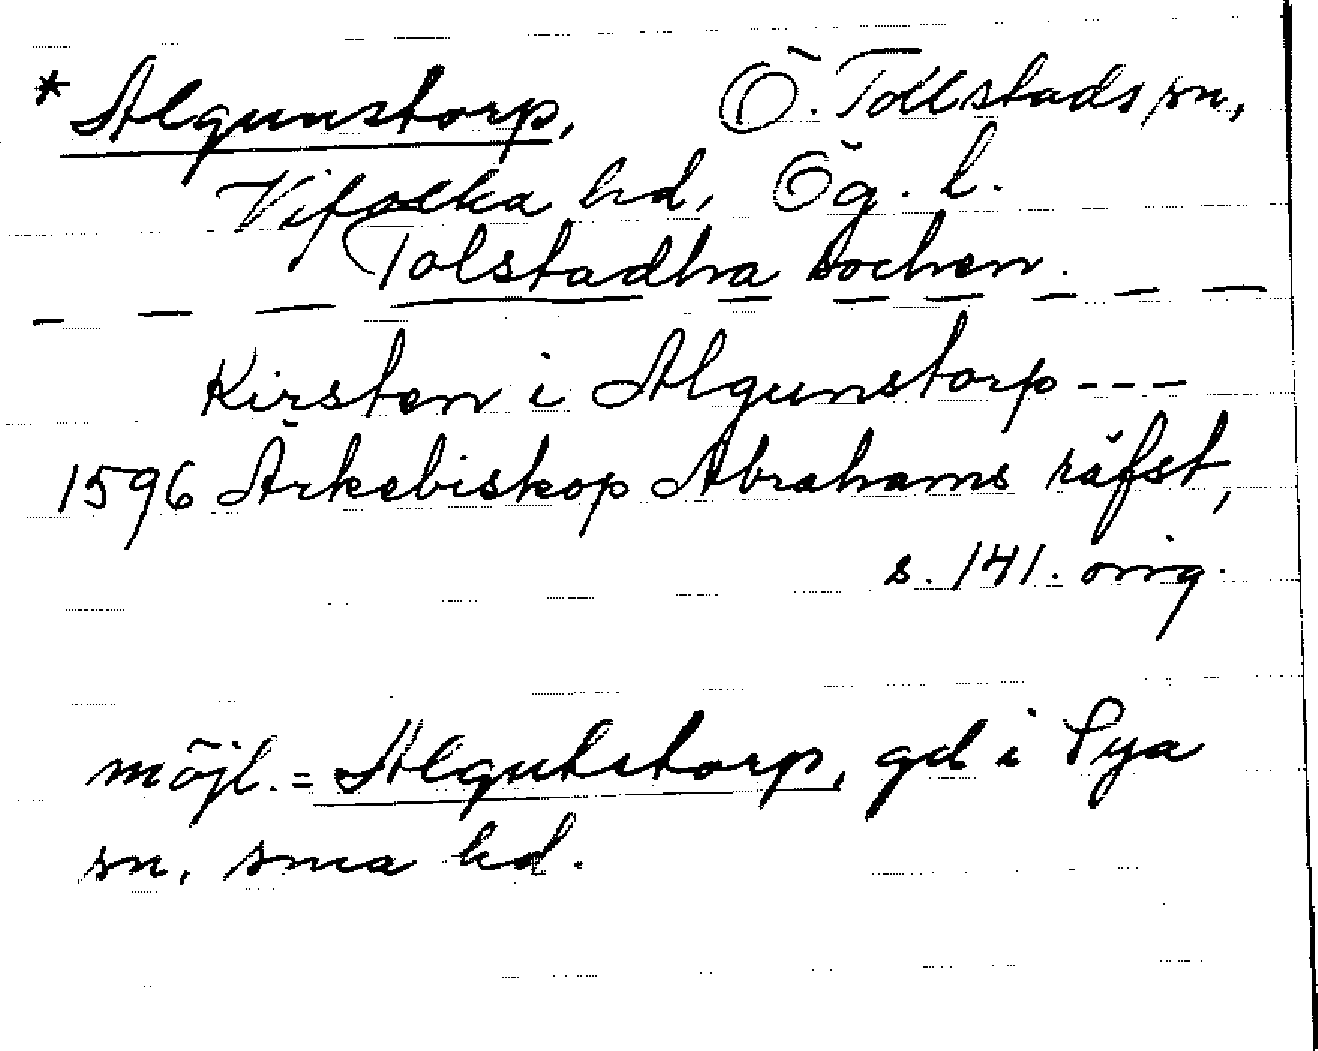 * Algunstorp, Ö. Tollstads sn,
Vifolka hd, Ög. l.
Tolstadha sochen.
Kirsten i Algunstorp ---
1596 Ärkebiskop Abrahams räfst,
s. 141. orig.
möjl. = Algutstorp, gd i Sya
sn, sma hd.